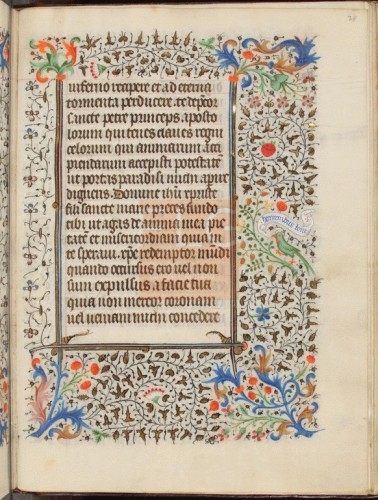 inferno recipere et ad eterna
tormenta perducere. te deprecor
Sancte petre princeps aposto
lorum qui tenes claues regni
celorum qui animarum acci
piendarum accepisti potestate
ut portas paradisi michi aperi
digneris. Domine ihu xpriste
fili sancte marie preces fundo
tibi ut agas de anima mea pie
tate et misericordiam quia in
te speraui. xpe redemptor mudi
quando occulsus ero uel non
sum expulsus a facie tua
quia non mereor coronam
uel ueniam michi concedere